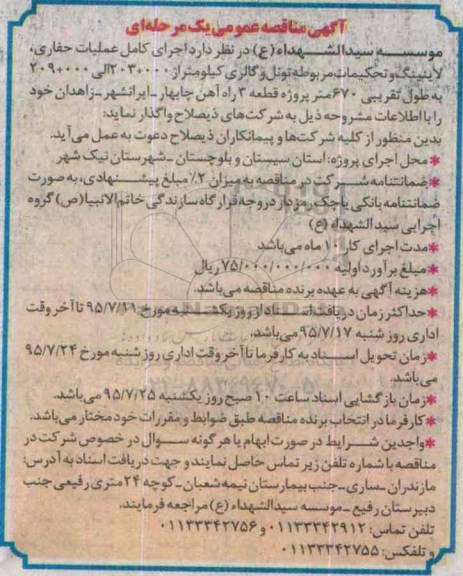 آگهی مناقصه عمومی یک مرحله‌ای
موسسه سیدالشهداء(ع) در نظر دارد اجرای کامل عملیات حفاری،
لاینینگ و تحکیمات مربوطه تونل و گالری کیلومتر از ۲۰۳+۰۰۰ الی ۲۰۹+۰۰۰
به طول تقریبی ۶۷۰ متر پروژه قطعه ۳ راه آهن چابهار-ایرانشهر-زاهدان خود
را با اطلاعات مشروحه ذیل به شرکت‌های ذیصلاح واگذار نماید:
بدین منظور از کلیه شرکت‌ها و پیمانکاران ذیصلاح دعوت به عمل می‌آید.
*محل اجرای پروژه: استان سیستان و بلوچستان -شهرستان نیک شهر
*ضمانتنامه شرکت در مناقصه به میزان ۲٪ مبلغ پیشنهادی، به صورت
ضمانتنامه بانکی یا چک رمزدار در وجه قرارگاه سازندگی خاتم‌الانبیا(ص) گروه
اجرایی سیدالشهداء (ع)
*مدت اجرای کار ۱۰ ماه می‌باشد
*مبلغ برآورد اولیه ۷۵/۰۰۰/۰۰۰/۰۰۰ ریال
*هزینه آگهی به عهده برنده مناقصه می‌باشد.
*حداکثر زمان دریافت اسناد از روز یکشنبه مورخ ۹۵/۷/۱۱ تا آخر وقت
اداری روز شنبه ۹۵/۷/۱۷ می‌باشد.
*زمان تحویل اسناد به کارفرما تا آخر وقت اداری روز شنبه مورخ ۹۵/۷/۲۴
می‌باشد.
*زمان بازگشایی اسناد ساعت ۱۰ صبح روز یکشنبه ۹۵/۷/۲۵ می‌باشد.
*کارفرما در انتخاب برنده مناقصه طبق ضوابط و مقررات خود مختار می‌باشد.
*واجدین شرایط در صورت ابهام یا هرگونه سوال در خصوص شرکت در
مناقصه با شماره تلفن زیر تماس حاصل نمایند و جهت دریافت اسناد به آدرس:
مازندران -ساری -جنب بیمارستان نیمه شعبان -کوچه ۲۴ متری رفیعی جنب
دبیرستان رفیع -موسسه سیدالشهداء (ع) مراجعه فرمایند.
تلفن تماس: ۰۱۱۳۳۳۴۲۹۱۲ و ۰۱۱۳۳۳۴۲۷۵۶
و تلفکس: ۰۱۱۳۳۳۴۲۷۵۵